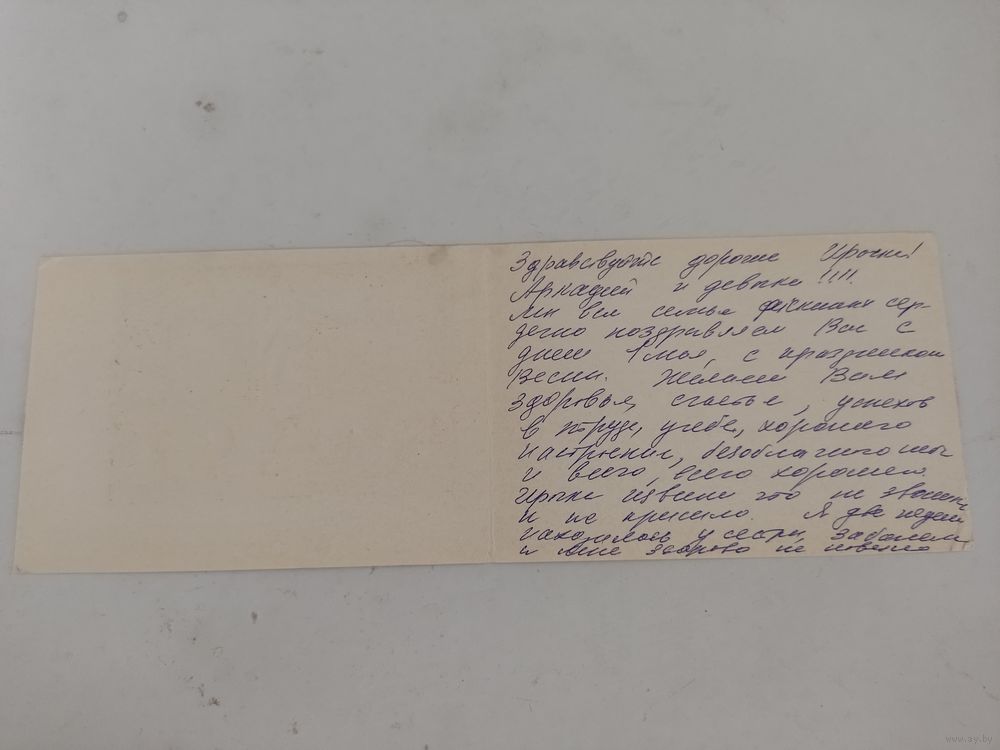 Здравствуйте дорогие Ирочка!
Аркадий и девочки!!!!
Мы всей семьёй сер-
дечно поздравляем Вас с
днем 1 мая, с праздником
Весны. Желаем Вам
здоровья, счастье, успехов
в труде, учебе, хорошего
настроения, безоблачного
и всего, всего хорошего.
Ирочка извини что не
и не. Я две недели
находилась у сестры,
и мне здорово не
www.ay.by